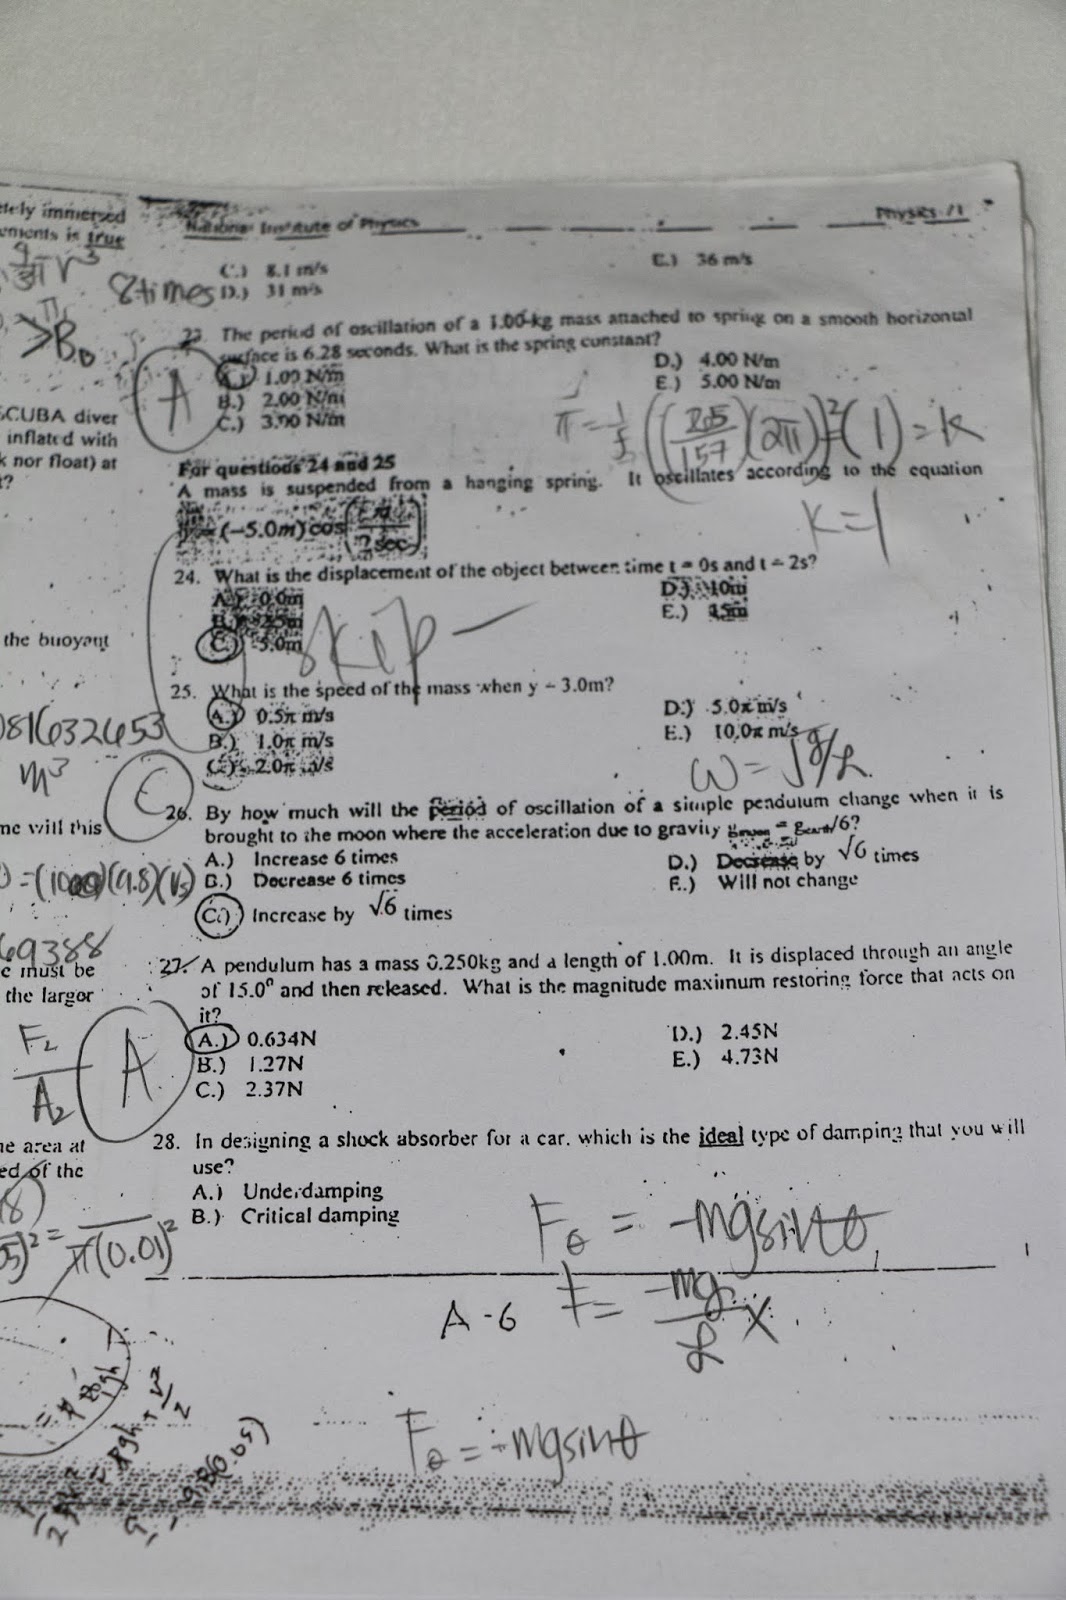 etely immersed
ements is true
National Institute of Physics
Physics 71
C.) 8.1 m/s
E.) 36 m/s
8 times D.) 31 m/s
> B
23. The period of oscillation of a 1.00-kg mass attached to spring on a smooth horizontal
surface is 6.28 seconds. What is the spring constant?
A.) 1.00 N/m
D.) 4.00 N/m
B.) 2.00 N/m
E.) 5.00 N/m
C.) 3.00 N/m
A
SCUBA diver
inflated with
k nor float) at
t?
(1) = k
K = 1
For questions 24 and 25
A mass is suspended from a hanging spring. It oscillates according to the equation
(-5.0m) cos
24. What is the displacement of the object between time t = 0s and t = 2s?
A.) 0.0m
D.) 10m
E.) 15m
C.) -5.0m
skip
the buoyant
25. What is the speed of the mass when y = 3.0m?
A.) 0.5π m/s
D.) 5.0π m/s
B.) 1.0π m/s
E.) 10.0π m/s
C.) 2.0π m/s
081632653
m³
C
ω = √g/L
26. By how much will the period of oscillation of a simple pendulum change when it is
brought to the moon where the acceleration due to gravity gmoon = gearth/6?
me will this
A.) Increase 6 times
D.) Decrease by √6 times
B.) Decrease 6 times
E.) Will not change
C.) Increase by √6 times
69388
e must be
the largor
27. A pendulum has a mass 0.250kg and a length of 1.00m. It is displaced through an angle
of 15.0⁰ and then released. What is the magnitude maximum restoring force that acts on
it?
A.) 0.634N
D.) 2.45N
B.) 1.27N
E.) 4.73N
C.) 2.37N
A
F₂
A₂
28. In designing a shock absorber for a car, which is the ideal type of damping that you will
use?
A.) Underdamping
B.) Critical damping
ne area at
ed of the
π(0.01)²
Fθ = -mgsinθ
A-6
F = -mg/L x
Fθ = -mgsinθ